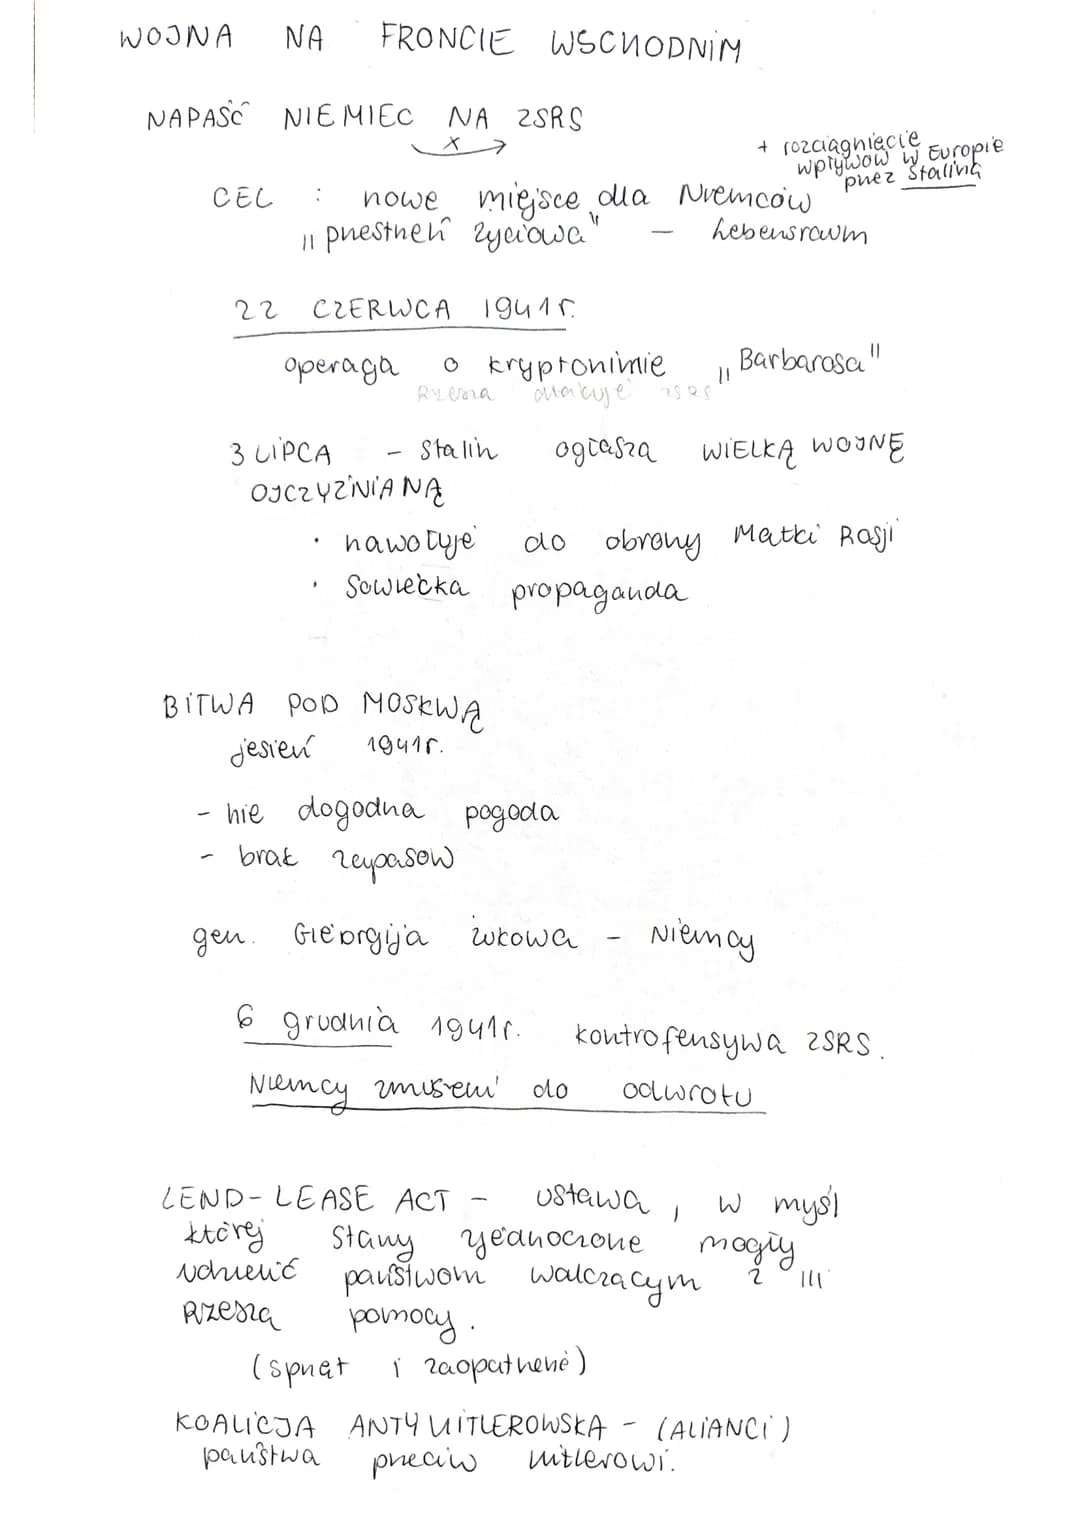 WOJNA NA FRONCIE WSCHODNIM
NAPAŚĆ NIEMIEC NA ZSRS
x
+ rozciągnięcie
wpływów w Europie
przez Stalina
CEL : nowe miejsce dla Niemców
„przestrzeń życiowa" – Lebensraum
22 CZERWCA 1941r.
operacja o kryptonimie „Barbarosa"
Rzesza atakuje ZSRS
3 LIPCA - Stalin ogłasza WIELKĄ WOJNĘ
OJCZYŹNIANĄ
• nawołuje do obrony Matki Rosji
• Sowiecka propaganda
BITWA POD MOSKWĄ
jesień 1941r.
- nie dogodna pogoda
- brak zapasów
gen. Gieorgija Żukowa - Niemcy
6 grudnia 1941r. kontrofensywa ZSRS.
Niemcy zmuszeni do odwrotu
LEND-LEASE ACT - ustawa, w myśl
której Stany Zjednoczone mogły
udzielić państwom walczącym z III
Rzeszą pomocy.
(sprzęt i zaopatrzenie)
KOALICJA ANTYHITLEROWSKA - (ALIANCI)
państwa przeciw Hitlerowi.